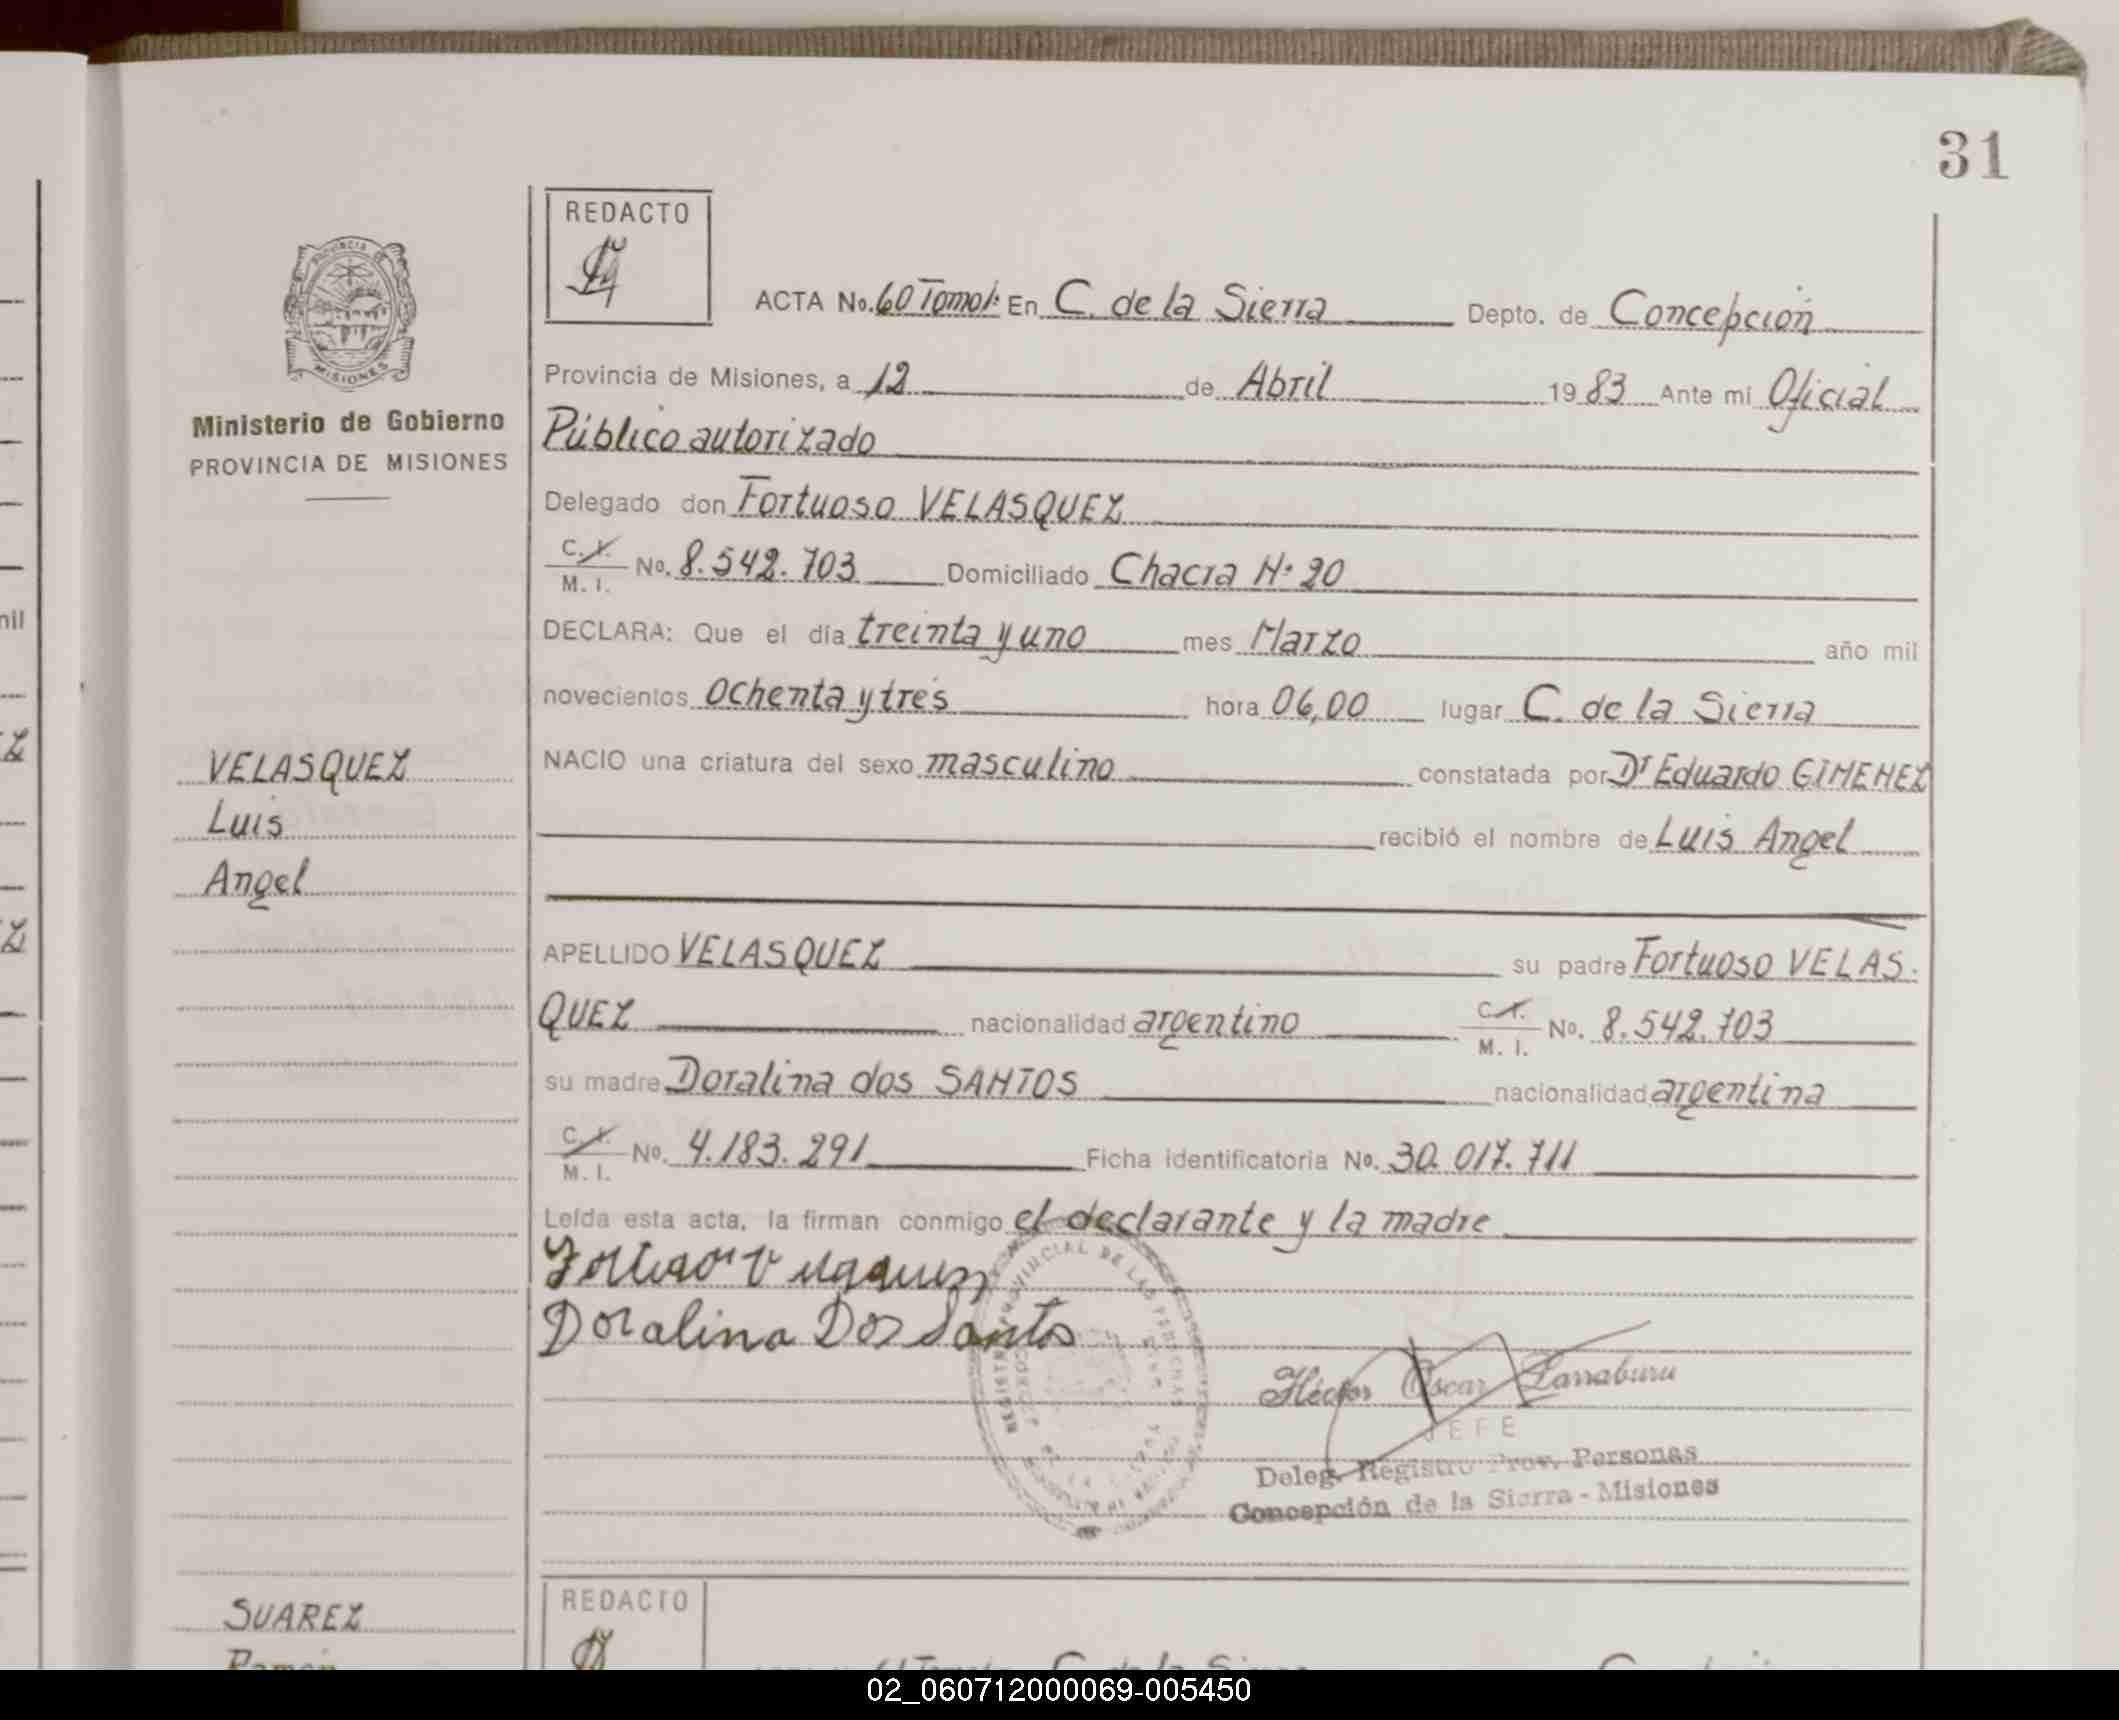 31
REDACTO
PROVINCIA DE
MISIONES
Ministerio de Gobierno
PROVINCIA DE MISIONES
ACTA No. 60 Tomo I: En C. de la Sierra Depto. de Concepción
Provincia de Misiones, a 12 de Abril 1983 Ante mi Oficial
Público autorizado
Delegado don Fortuoso VELASQUEZ
C. I. M. I. No. 8.542.703 Domiciliado Chacra Nº 20
DECLARA: Que el día treinta y uno mes Marzo año mil
novecientos ochenta y tres hora 06,00 lugar C. de la Sierra
VELASQUEZ
Luis
Angel
NACIO una criatura del sexo masculino constatada por Dr Eduardo GIMENEZ
recibió el nombre de Luis Angel
APELLIDO VELASQUEZ su padre Fortuoso VELAS-
QUEZ nacionalidad argentino C. I. M. I. No. 8.542.703
su madre Doralina dos SANTOS nacionalidad argentina
C. I. M. I. No. 4.183.291 Ficha identificatoria No. 30.017.711
Leída esta acta, la firman conmigo el declarante y la madre
Doralina Dos Santos
Héctor Oscar Larraburu
JEFE
Deleg. Registro Prov. Personas
Concepción de la Sierra - Misiones
REDACTO
SUAREZ
Ramón
nil
02_060712000069-005450